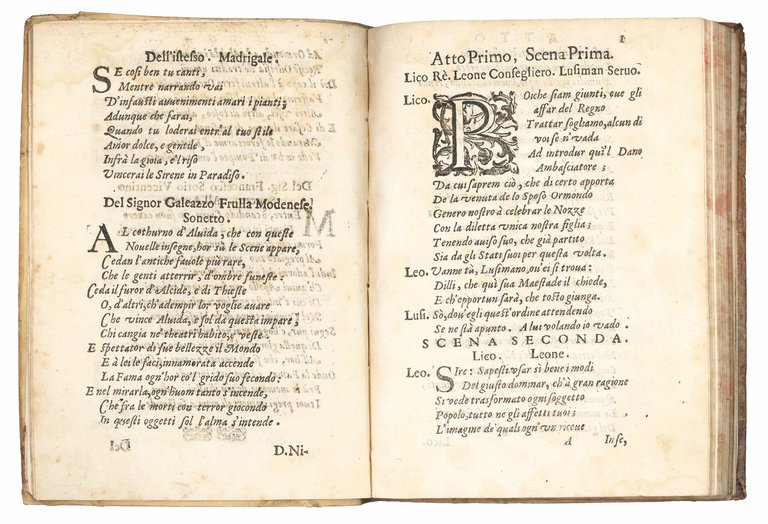 Dell'istesso. Madrigale.
SE così ben tu canti,
Mentre narrando vai
D'infausti auuenimenti amari i pianti;
Adunque che farai,
Quando tu loderai entr'al tuo stile
Amor dolce, e gentile,
Infrà la gioia, e'l riso
Vincerai le Sirene in Paradiso.
Del Signor Galeazzo Frulla Modenese.
Sonetto.
AL cothurno d'Aluida, che con queste
Nouelle insegne, hor sù le Scene appare,
Cedan l'antiche fauole più rare,
Che le genti atterrir, d'ombre funeste.
Ceda il furor d'Alcide, e di Thieste
O, d'altri, ch'adempir lor voglie auare
Che vince Aluida, e sol da questa impare;
Chi cangia ne' theatri habito, e veste.
E Spettator di sue bellezze il Mondo
E à lei le faci, innamorata accende
La Fama ogn'hor co'l grido suo fecondo:
E nel mirarla, ogn'huom tanto s'incende,
Che frà le morti con terror giocondo
In questi oggetti sol l'alma s'intende.
D.Ni-
Atto Primo, Scena Prima.
Lico Rè. Leone Consegliero. Lusiman Seruo.
Lico. POiche siam giunti, oue gli
affar del Regno
Trattar sogliamo, alcun di
voi se n'vada
Ad introdur quì'l Dano
Ambasciatore;
Da cui saprem ciò, che di certo apporta
De la venuta de lo Sposo Ormondo
Genero nostro à celebrar le Nozze
Con la diletta vnica nostra figlia;
Tenendo auiso suo, che già partito
Sia da gli Stati suoi per questa volta.
Leo. Vanne tù, Lusimano, ou'ei si troua:
Dilli, che quì sua Maestade il chiede,
E ch'opportun sarà, che tosto giunga.
Lusi. Sò, dou'egli quest'ordine attendendo
Se ne stà apunto. A lui volando io vado.
SCENA SECONDA.
Lico. Leone.
Leo. SIre: Sapesti vsar sì bene i modi
Del giusto dominar, ch'à gran ragione
Si vede trasformato ogni soggetto
Popolo, tutto ne gli affetti tuoi;
L'imagine de' quali ogn'vn riceue
A Inse,